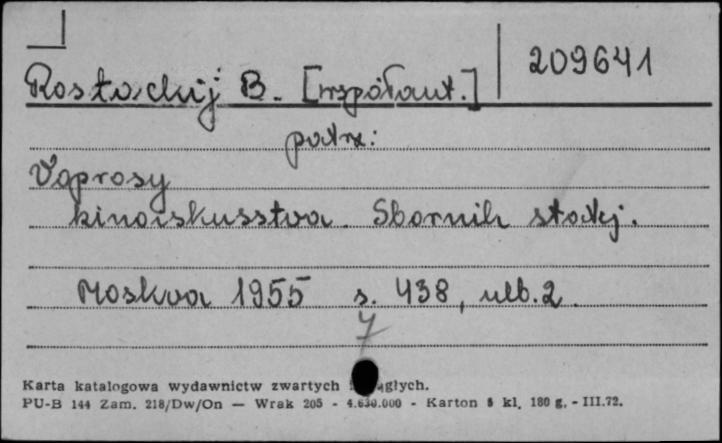 Rostockij B. [współaut.] 209641
patrz:
Voprosy
kinoiskusstva. Sbornik statej.
Moskva 1955 s. 438, nlb. 2.
7
Karta katalogowa wydawnictw zwartych głych.
PU-B 144 Zam. 218/Dw/On — Wrak 205 - 4.630.000 - Karton 5 kl. 180 g. - III.72.